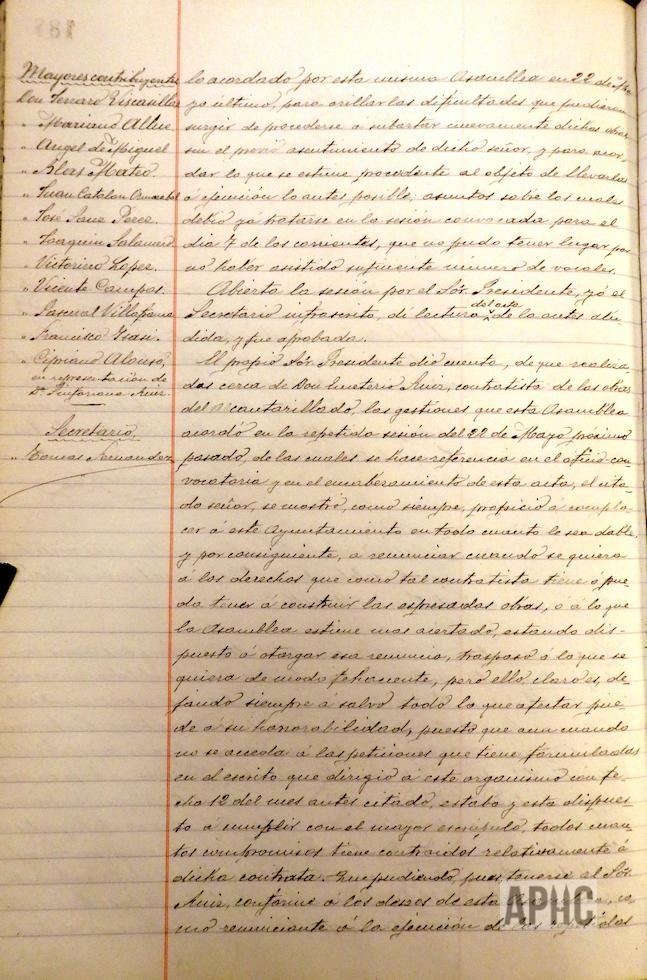 Mayores contribuyentes
" Mariano Allue
" Angel de Miguel
" Blas Mateo
" Juan Catalan
" Jose Sanz Perez
" Joaquin
" Victorino Lopez
" Vicente Campos
" Pascual Villafranca
" Francisco
" Cipriano Alonso,
en representación de
Secretario
" Tomas Fernandez
lo acordado por esta misma Asamblea en 22 de Ma-
yo último, para orillar las dificultades que pudieran
surgir de procederse á subastar nuevamente dichas obras
sin el previo asentimiento de dicho señor, y para acor-
dar lo que se estime procedente al objeto de llevarlas
á ejecución lo antes posible; asuntos sobre los cuales
debió yá tratarse en la sesión convocada para el
dia 7 de los corrientes, que no pudo tener lugar por
no haber asistido suficiente número de vocales.
Abierta la sesión por el Sór. Presidente, yó el
Secretario infrascrito, di lectura del acta de la antes alu-
dida, y fue aprobada.
El propio Sór. Presidente dió cuenta, de que realiza-
das cerca de Don Emeterio Ruiz, contratista de las obras
del alcantarillado, las gestiones que esta Asamblea
acordó en la repetida sesión del 22 de Mayo próximo
pasado, de las cuales se hace referencia en el oficio con-
vocatoria y en el encabezamiento de esta acta, el cita-
do señor, se mostró, como siempre, propicio á compla-
cer á este Ayuntamiento en todo cuanto le sea dable,
y por consiguiente, á renunciar cuando se quiera
á los derechos que como tal contratista tiene ó pue-
da tener á construir las espresadas obras, ó á lo que
la Asamblea estime mas acertado, estando dis-
puesto á otorgar esa renuncia, traspaso ó lo que se
quiera de modo fehaciente, pero ello, claro es, de-
jando siempre á salvo todo lo que afectar pue-
da á su honorabilidad, puesto que aun cuando
no se acceda á las peticiones que tiene formuladas
en el escrito que dirigió á este organismo con fe-
cha 12 del mes antes citado, estaba y está dispues-
to á cumplir con el mayor escrúpulo, todos cuan-
tos compromisos tiene contraidos relativamente á
dicha contrata. Que pudiendo, pues, tenerse al Sór.
Ruiz, conforme á los deseos de esta Asamblea, co-
mo renunciante á la ejecución de las repetidas
APHC